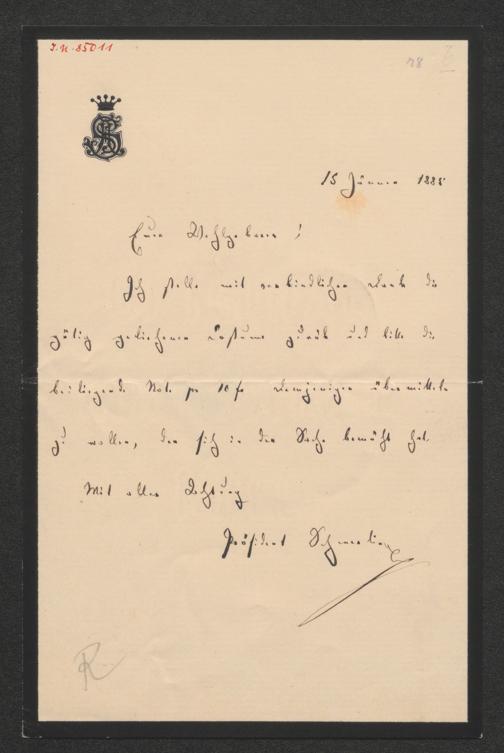 I.N. 85011
15 Jänner 1888
Euer Wohlgeboren!
Ich stelle mit verbindlichen Dank die
gütig geliehenen Costume zurük und bitte die
beiliegende Note pr 10 fl Demjenigen übermitteln
zu wollen, der sich in der Sache bemüht hat.
Mit aller Achtung
Präsident Schmerling
R.